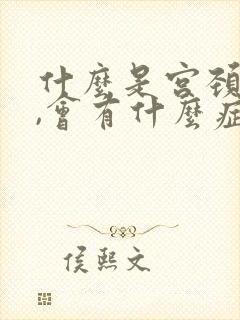 什麼是宮頸
,會有什麼症
侯熙文